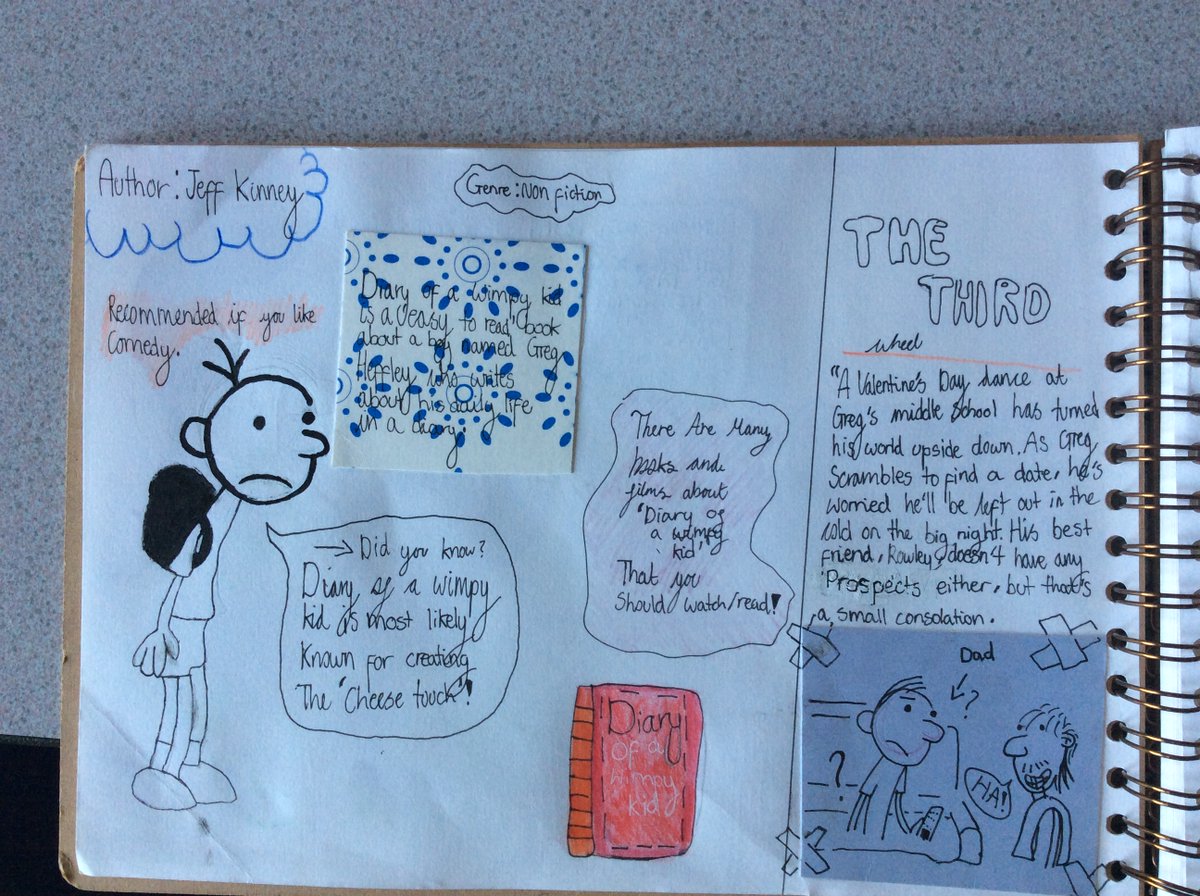 Author: Jeff Kinney
Genre: Non fiction
Recommended if you like
Comedy.
Diary of a wimpy kid
is a "easy to read" book
about a boy named Greg
Heffley who writes
about his daily life
in a diary.
There Are Many
books and
films about
"Diary of
a wimpy
kid"
That you
Should watch/read!
→ Did you know?
Diary of a wimpy
kid is most likely
Known for creating
The "Cheese touch"!
Diary
of a
wimpy
kid
THE
THIRD
wheel
"A Valentine's Day dance at
Greg's middle school has turned
his world upside down. As Greg
Scrambles to find a date, he's
worried he'll be left out in the
cold on the big night. His best
friend, Rowley, doesn't have any
Prospects either, but that's
a small consolation.
Dad
?
?
HA!